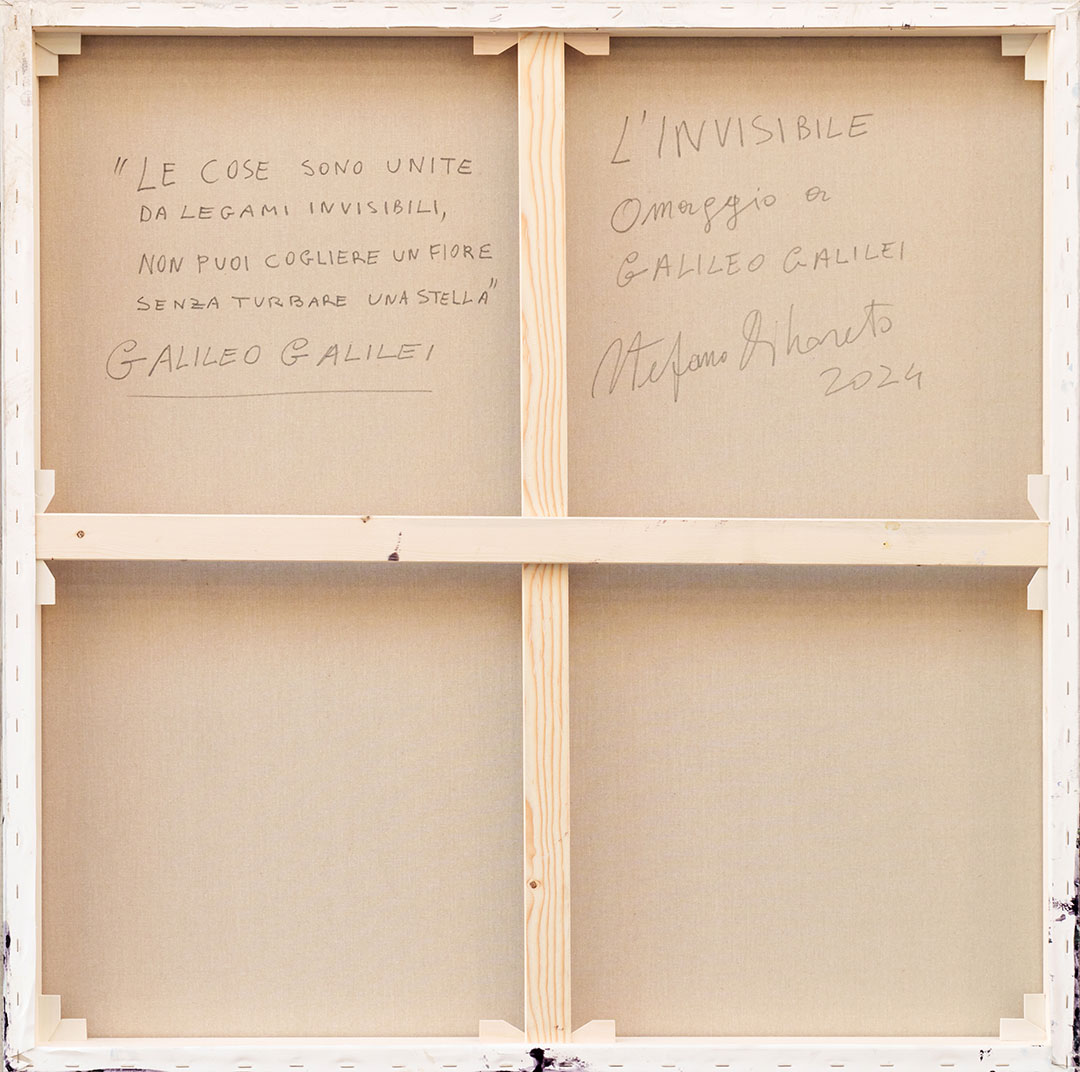 "LE COSE SONO UNITE
DA LEGAMI INVISIBILI,
NON PUOI COGLIERE UN FIORE
SENZA TURBARE UNA STELLA"
GALILEO GALILEI
L'INVISIBILE
Omaggio a
GALILEO GALILEI
Stefano
2024